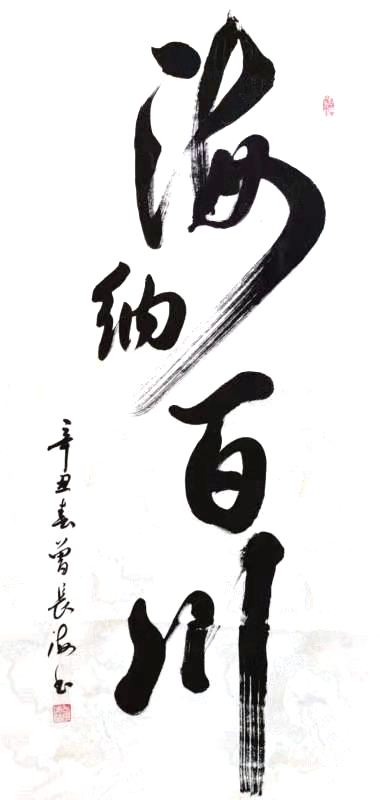 海纳百川
辛丑春曾長海书